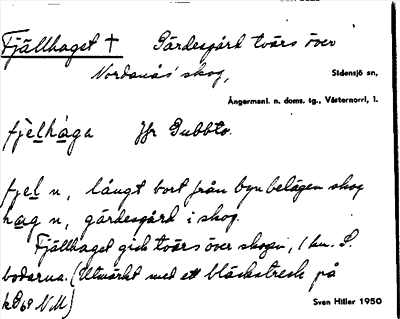 Fjällhaget † Gärdesgård tvärs över
Nordanås' skog,
Sidensjö sn,
Ångermanl. n. doms. tg., Västernorrl. l.
fjelhaga Jfr Gubbto.
fjel n, långt bort från byn belägen skog
hag n, gärdesgård i skog.
Fjällhaget gick tvärs över skogen, 1 km. S.
bodarna. (Utmärkt med ett bläckstreck på
NM)
Sven Hiller 1950